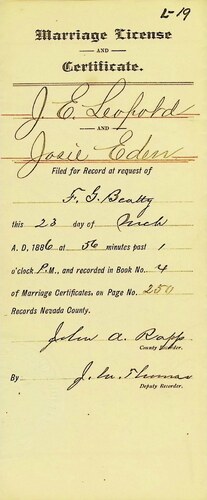 L-19
Marriage License
AND
Certificate.
J. E. Leopold
AND
Josie Eden
Filed for Record at request of
F. G. Beatty
this 23 day of Mch
A. D. 1886 at 56 minutes past 1
o'clock P.M., and recorded in Book No. 4
of Marriage Certificates, on Page No. 250
Records Nevada County.
John A. Rapp
County Recorder.
By J. W. Thomas
Deputy Recorder.